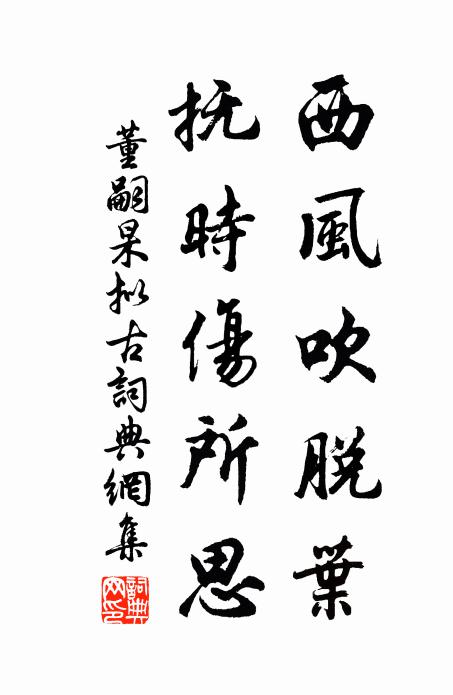 西風吹脫葉
抚時傷所思
董嗣杲拟古詞典網集
詞典網印